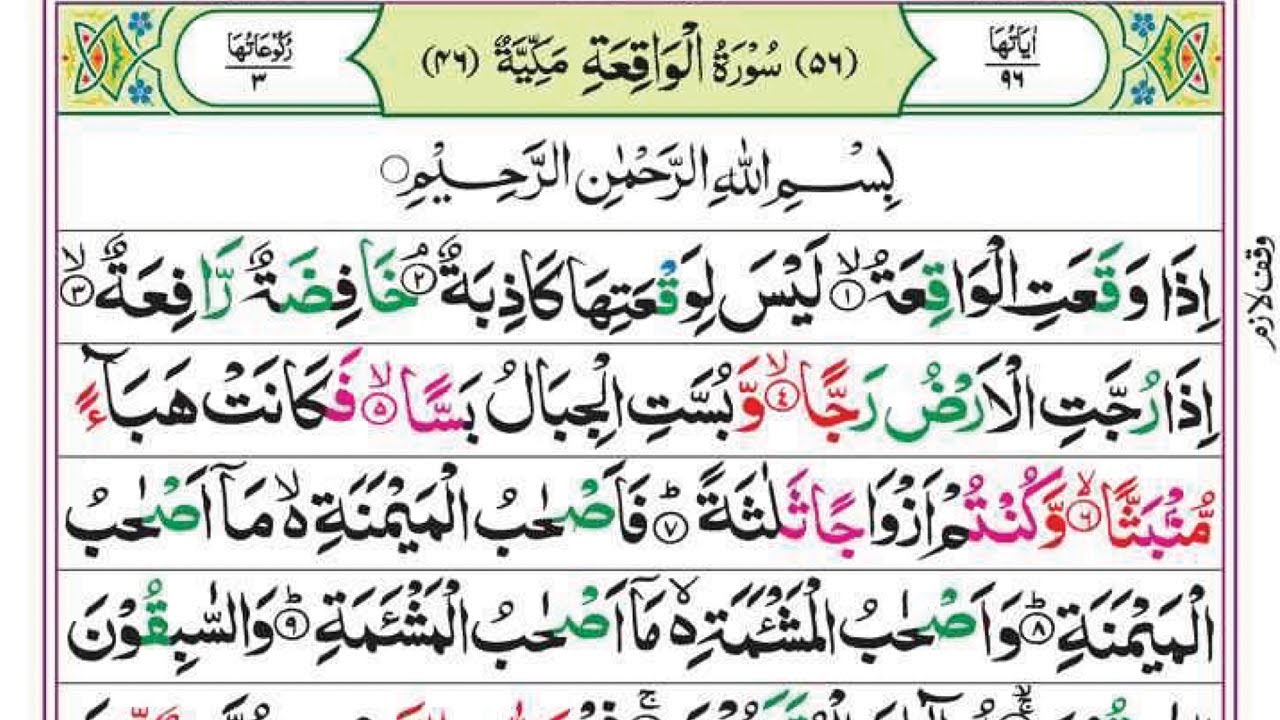 اٰیَاتُهَا ٩٦
(٥٦) سُوْرَةُ الْوَاقِعَةِ مَكِّیَّةٌ (٤٦)
رُكُوْعَاتُهَا ٣
بِسْمِ اللّٰهِ الرَّحْمٰنِ الرَّحِیْمِ
اِذَا وَقَعَتِ الْوَاقِعَةُ ۙ﴿١﴾ لَیْسَ لِوَقْعَتِهَا كَاذِبَةٌ ۘ﴿٢﴾ خَافِضَةٌ رَّافِعَةٌ ۙ﴿٣﴾
وقف لازم
اِذَا رُجَّتِ الْاَرْضُ رَجًّا ۙ﴿٤﴾ وَّ بُسَّتِ الْجِبَالُ بَسًّا ۙ﴿٥﴾ فَكَانَتْ هَبَآءً
مُّنْۢبَثًّا ۙ﴿٦﴾ وَّ كُنْتُمْ اَزْوَاجًا ثَلٰثَةً ؕ﴿٧﴾ فَاَصْحٰبُ الْمَیْمَنَةِ ۙ۬ مَاۤ اَصْحٰبُ
الْمَیْمَنَةِ ؕ﴿٨﴾ وَ اَصْحٰبُ الْمَشْـَٔمَةِ ۙ۬ مَاۤ اَصْحٰبُ الْمَشْـَٔمَةِ ؕ﴿٩﴾ وَ السّٰبِقُوْنَ